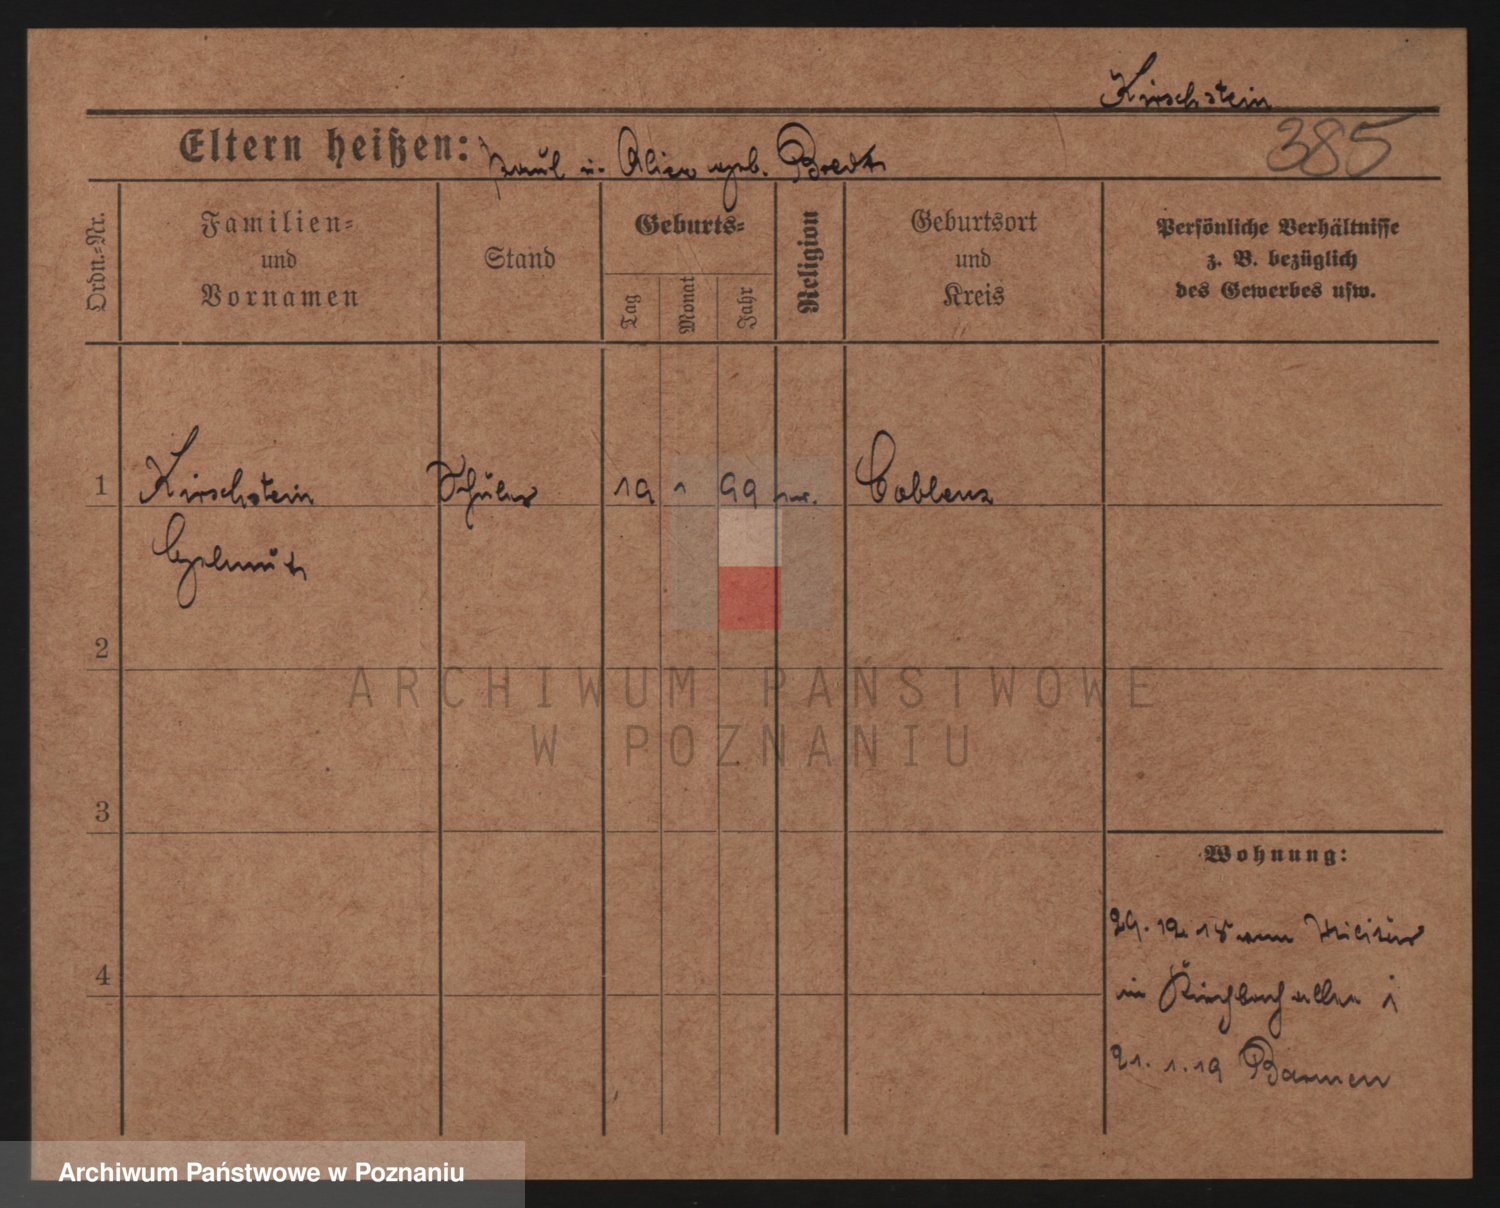 Kirschstein
385
Eltern heißen: Paul u. Alice geb. Bredt
Ordn.=Nr.
Familien=
und
Vornamen
Stand
Geburts=
Tag
Monat
Jahr
Religion
Geburtsort
und
Kreis
Persönliche Verhältnisse
z. B. bezüglich
des Gewerbes usw.
1 Kirschstein Schüler 19 1 99 Coblenz
Helmuth
2
ARCHIWUM PAŃSTWOWE
W POZNANIU
3
Wohnung:
29. 12. 18 vom Militär
in Kirchbachallee 1
4
21. 1. 19 Barmen
Archiwum Państwowe w Poznaniu